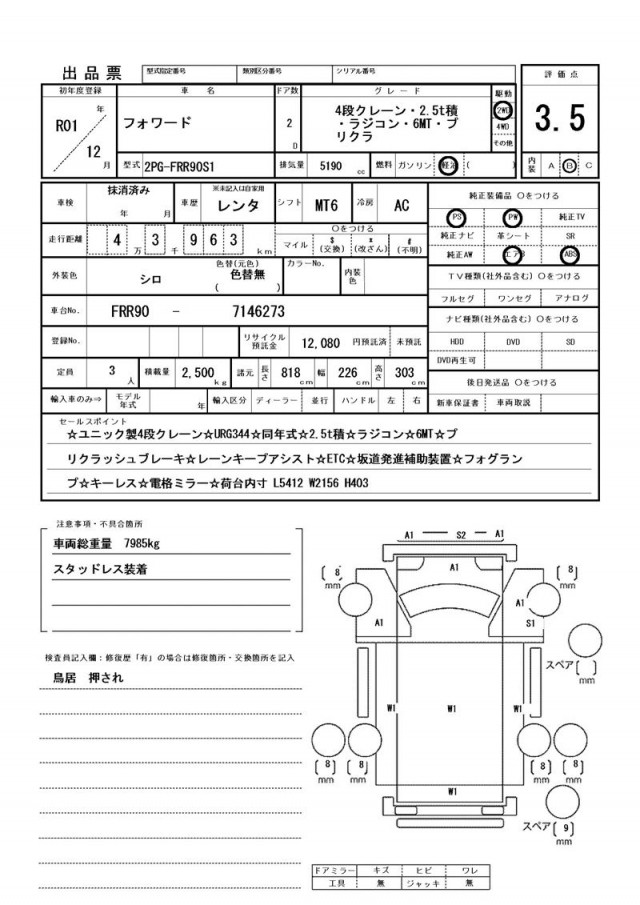 出品票 型式指定番号 類別区分番号 シリアル番号
初年度登録 車 名 ドア数 グレード 駆動 評価点
R01 年 12 月
フォワード
2 D
4段クレーン・2.5t積
・ラジコン・6MT・プ
リクラ
2WD
4WD
その他
3.5
型式 2PG-FRR90S1 排気量 5190 cc 燃料 ガソリン 軽油 ( ) 内装 A B C
車検 抹消済み 年 月 車歴 ※未記入は自家用 レンタ シフト MT6 冷房 AC
走行距離 4 万 3 千 9 6 3 km
○をつける
マイル $ (交換) * (改ざん) # (不明)
純正装備品 ○をつける
PS PW 純正TV
純正ナビ 革シート SR
純正AW エアB ABS
外装色 シロ 色替(元色) 色替無 ( ) カラーNo. 内装色
TV種類(社外品含む) ○をつける
フルセグ ワンセグ アナログ
車台No. FRR90 - 7146273
ナビ種類(社外品含む) ○をつける
登録No. リサイクル預託金 12,080 円預託済 未預託
HDD DVD SD
DVD再生可
定員 3 人 積載量 2,500 kg 諸元 長さ 818 cm 幅 226 cm 高さ 303 cm
後日発送品 ○をつける
輸入車のみ⇒ モデル年式 年 輸入区分 ディーラー 並行 ハンドル 左 右 新車保証書 車両取説
セールスポイント
☆ユニック製4段クレーン☆URG344☆同年式☆2.5t積☆ラジコン☆6MT☆プ
リクラッシュブレーキ☆レーンキープアシスト☆ETC☆坂道発進補助装置☆フォグラン
プ☆キーレス☆電格ミラー☆荷台内寸 L5412 W2156 H403
注意事項・不具合箇所
車両総重量 7985kg
スタッドレス装着
検査員記入欄：修復歴「有」の場合は修復箇所・交換箇所を記入
鳥居 押され
A1 S2 A1
A1
(8) mm (8) mm
A1 A1 S1
スペア( ) mm
W1 W1 W1
(8) mm (8) mm (8) mm (8) mm
W1
スペア(9) mm
ドアミラー キズ ヒビ ワレ
工具 無 ジャッキ 無